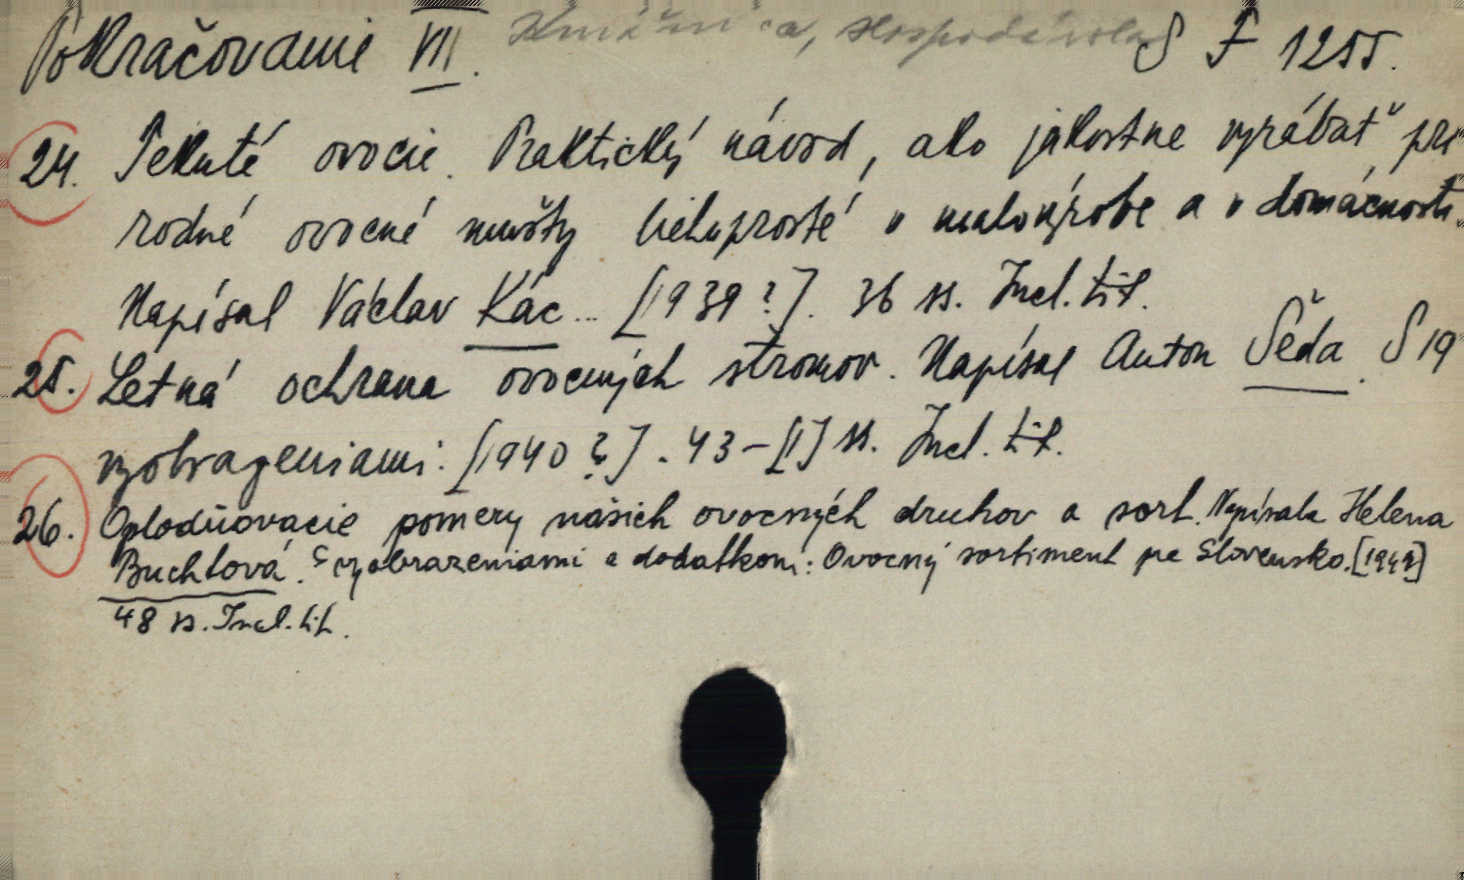 Pokračovanie VII. Knižnica, Hospodárska S F 1255.
24. Tekuté ovocie. Praktický návod, ako jakostne vyrábať prí
rodné ovocné mušty liehuprosté v malovýrobe a v domácnosti.
Napísal Václav Kác... [1939?]. 36 ss. Incl. tit.
25. Letná ochrana ovocných stromov. Napísal Anton Šéda. S 19
vyobrazeniami. [1940?]. 43-[1] ss. Incl. tit.
26. Oplodňovacie pomery našich ovocných druhov a sort. Napísala Helena
Buchtová. S vyobrazeniami a dodatkom: Ovocný sortiment pre Slovensko.
48 ss. Incl. tit.